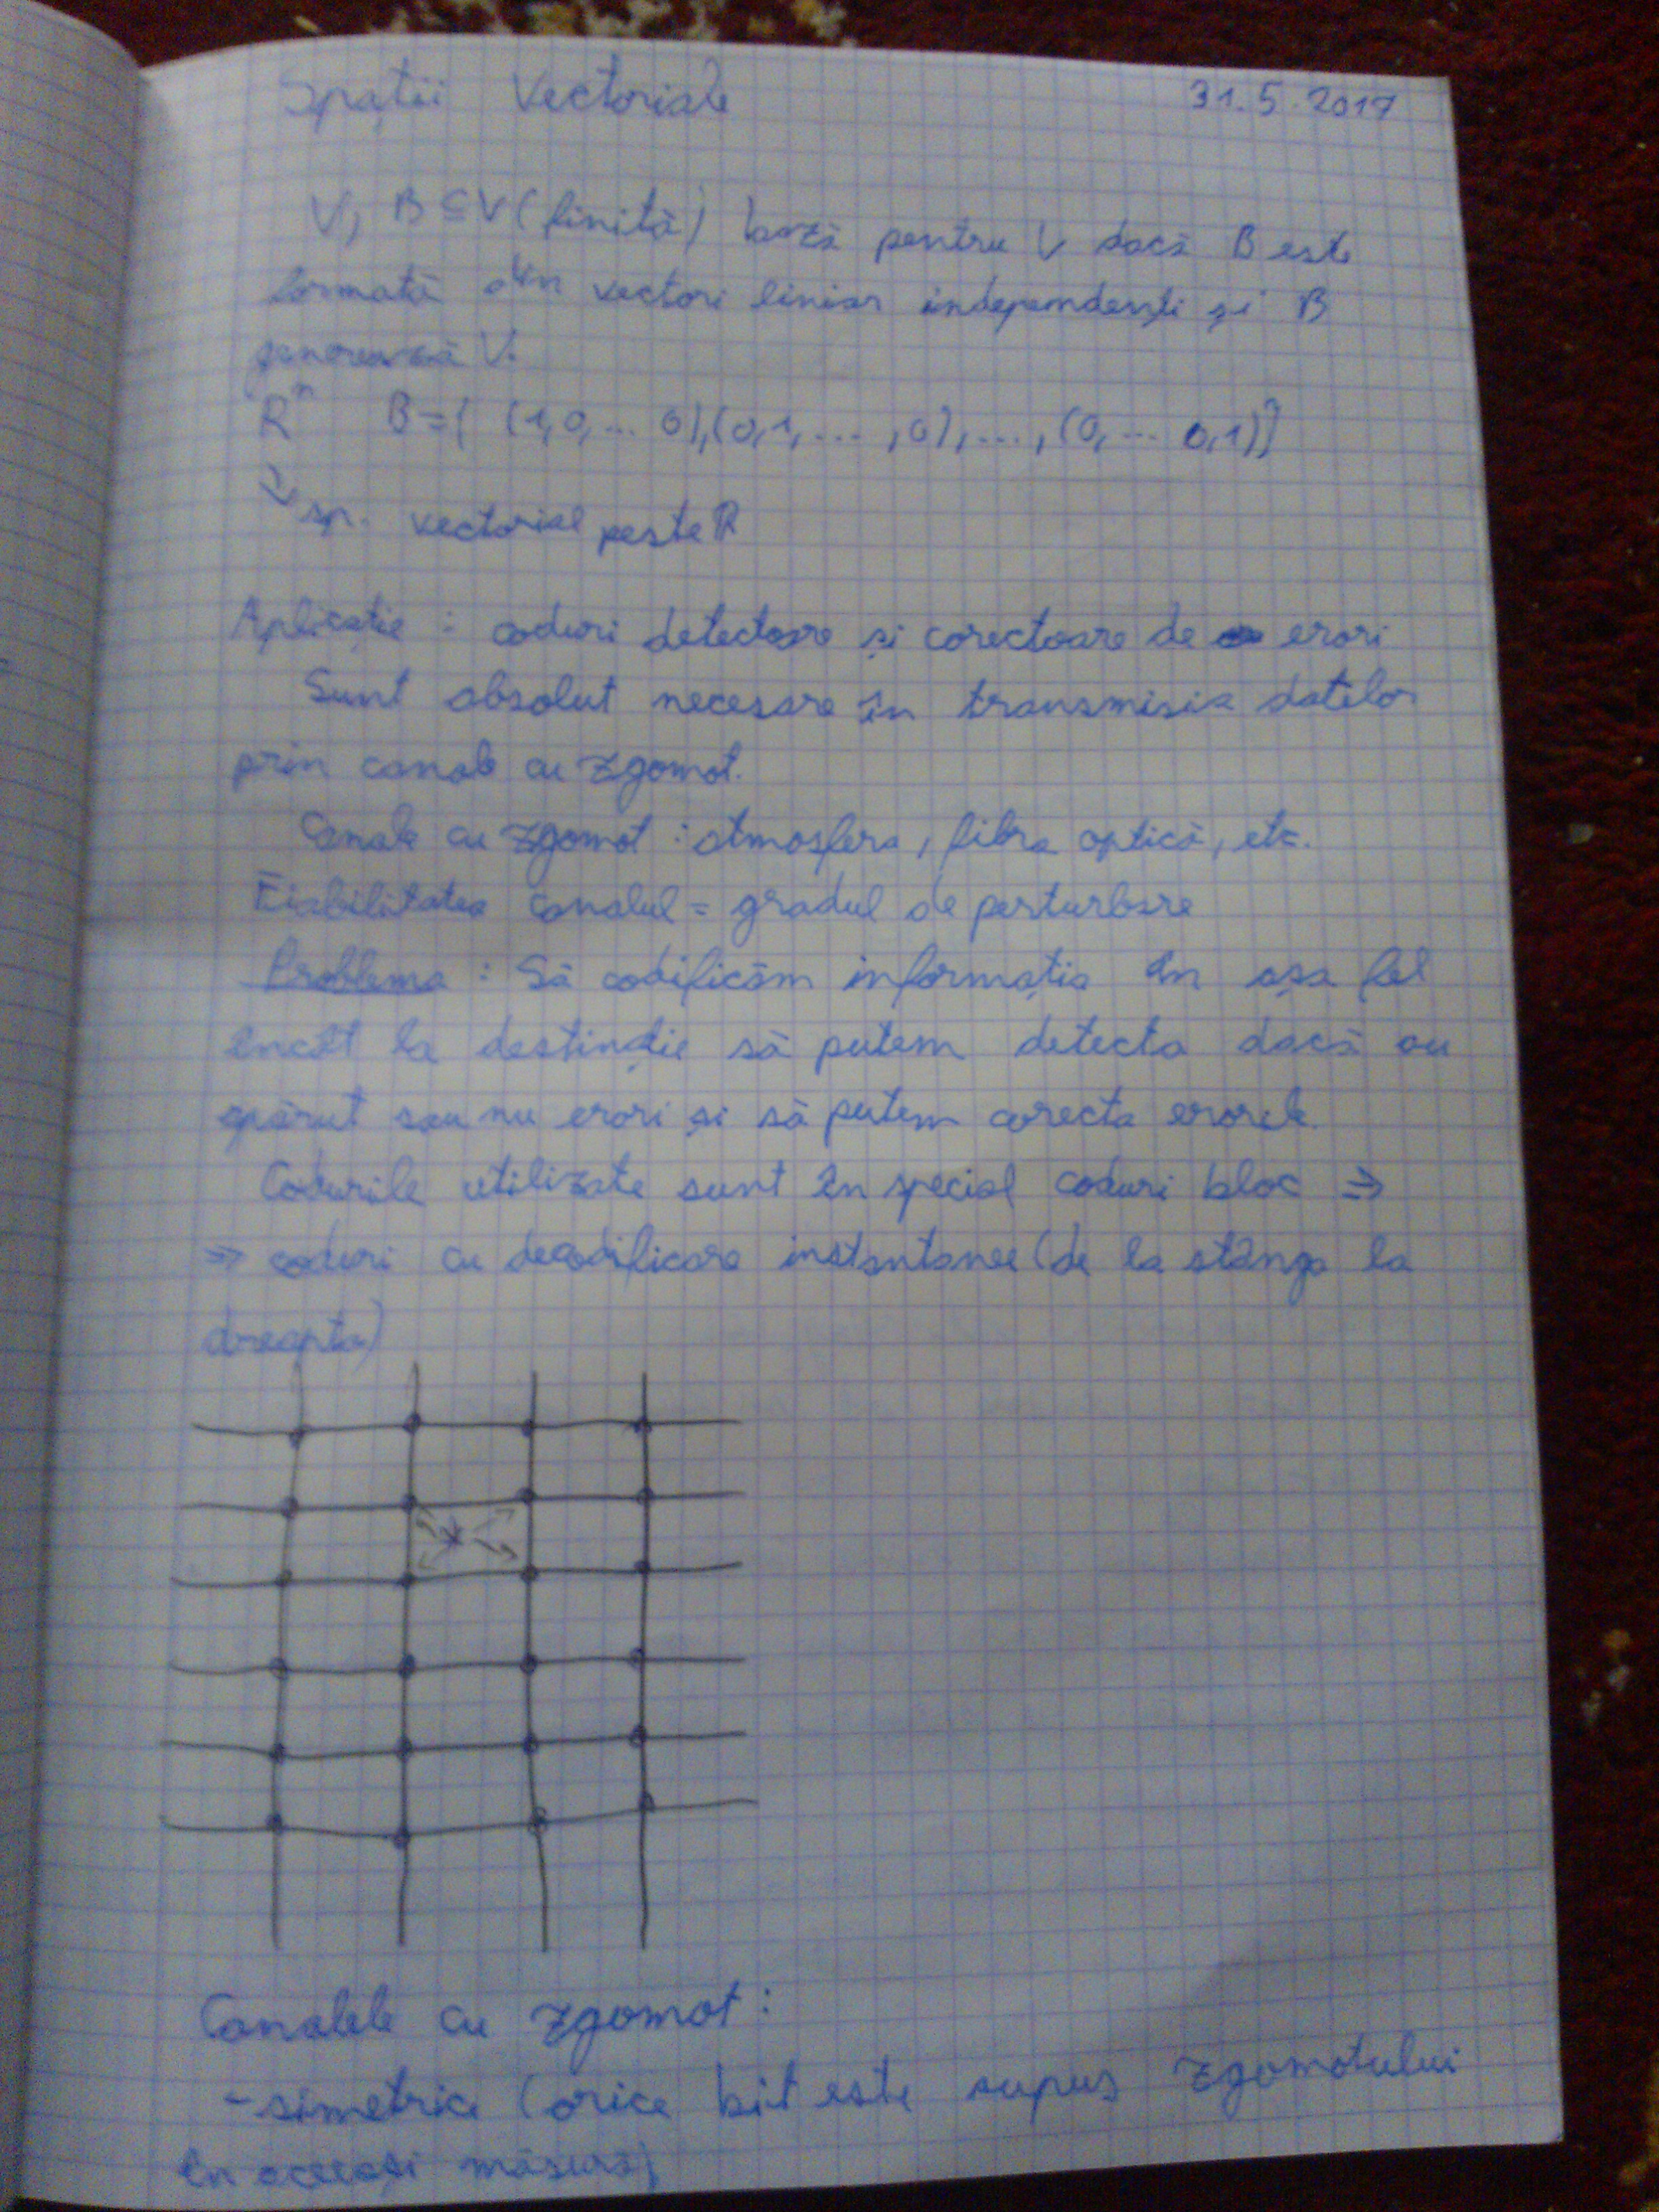 Spații Vectoriale 31.5.2017
V, B ⊆ V (finită) bază pentru V dacă B este
formată din vectori liniar independenți și B
generează V.
R^n B={ (1,0,... 0),(0,1,...,0),...,(0,... 0,1)}
↳ sp. vectorial peste R
Aplicație : coduri detectoare și corectoare de erori
Sunt absolut necesare în transmisia datelor
prin canale cu zgomot.
Canale cu zgomot : atmosfera, fibra optică, etc.
Fiabilitatea canalul = gradul de perturbare
Problema : Să codificăm informația în așa fel
încât la destinație să putem detecta dacă au
apărut sau nu erori și să putem corecta erorile.
Codurile utilizate sunt în special coduri bloc ⇒
⇒ coduri cu decodificare instantanee (de la stânga la
dreapta)
Canalele cu zgomot :
- simetrice (orice bit este supus zgomotului
în aceeași măsură)